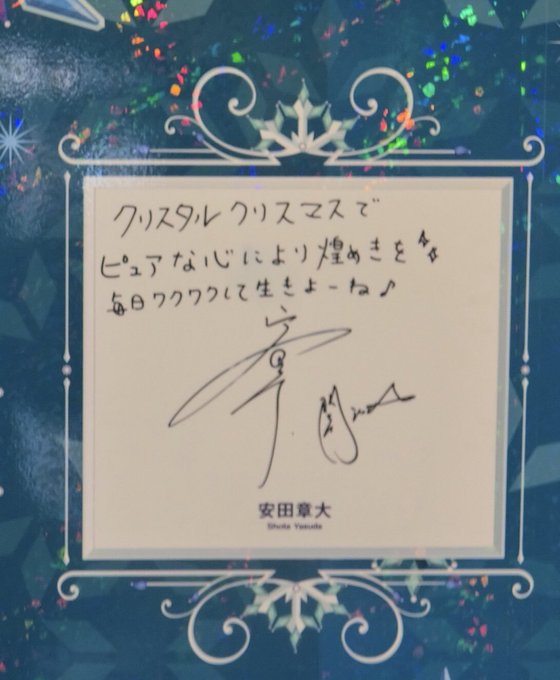 クリスタルクリスマスで
ピュアな心により煌めきを
毎日ワクワクして生きよーね♪
安田章大
Shota Yasuda